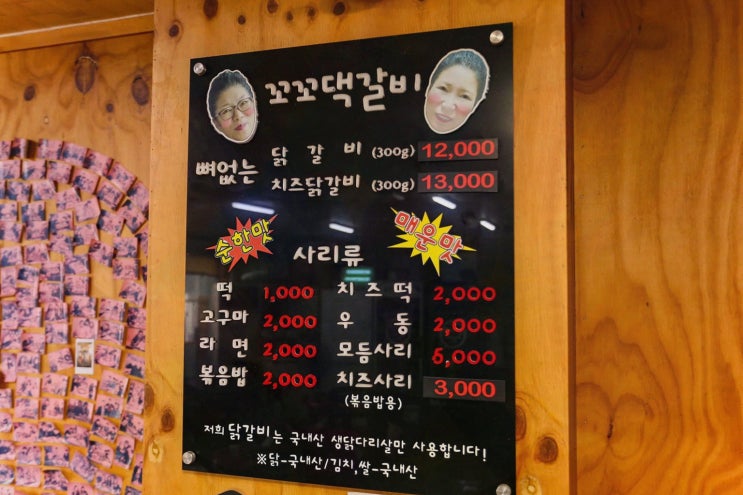 꼬꼬댁갈비
뼈없는
닭 갈 비 (300g) 12,000
치즈닭갈비 (300g) 13,000
순한맛
매운맛
사리류
떡 1,000 치 즈 떡 2,000
고구마 2,000 우 동 2,000
라 면 2,000 모듬사리 5,000
볶음밥 2,000 치즈사리 3,000
(볶음밥용)
저희 닭갈비는 국내산 생닭다리살만 사용합니다!
※닭-국내산/김치,쌀-국내산